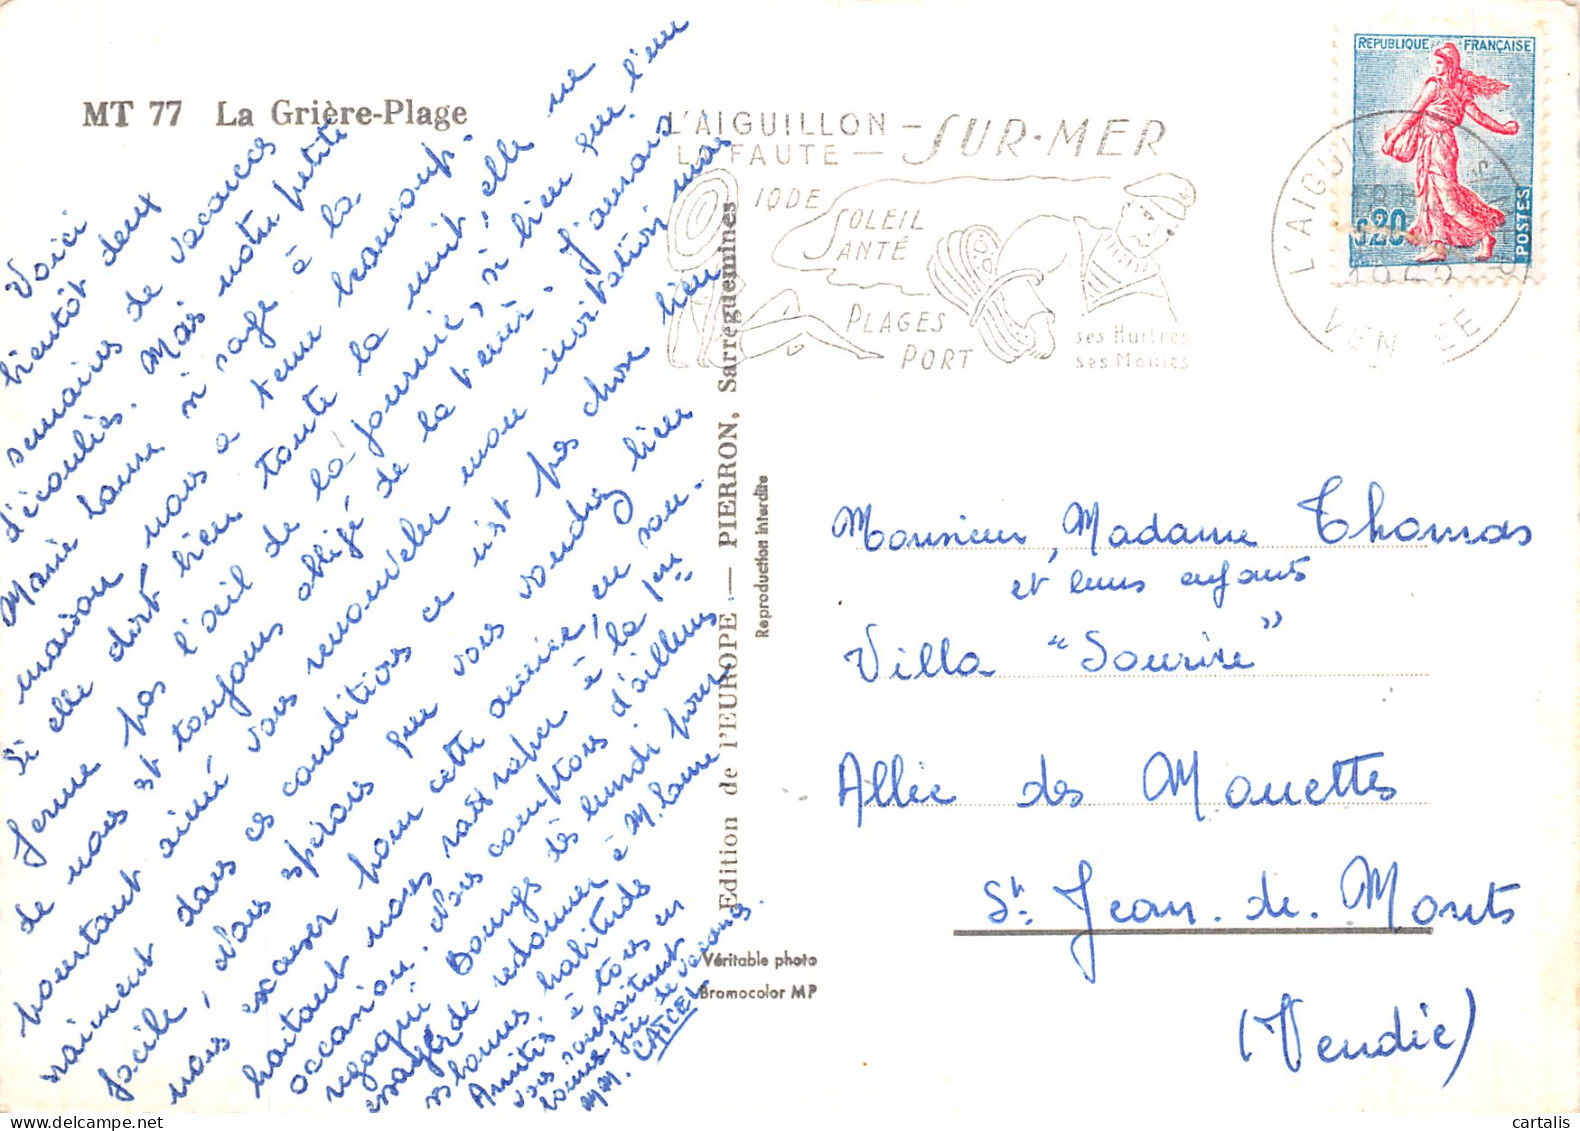 MT 77 La Grière-Plage
Voici
bientôt deux
semaines de vacances
d'écoulées. Mais notre petite
Marie Laure si sage à la
maison, nous a tenu beaucoup.
Si elle dort bien toute la nuit, elle ne
ferme pas l'œil de la journée, si bien que l'un
de nous est toujours obligé de la tenir. J'aurais
pourtant aimé vous renouveler mon invitation mais
vraiment dans ces conditions ce n'est pas chose bien
facile, alors espérons que vous voudrez bien
nous excuser pour cette année, en sou-
haitant nous rattraper à la 1ère
occasion. Nous comptons d'ailleurs
regagner Bourges dès lundi pour
essayer de redonner à M. Laure
ses bonnes habitudes
Amitiés à tous en
vous souhaitant
bonne fin de vacances.
MM. CATCEL
Edition de l'EUROPE — PIERRON, Sarreguemines
Reproduction interdite
Véritable photo
Bromocolor MP
L'AIGUILLON - SUR-MER
LA FAUTE -
IODE
SOLEIL
SANTÉ
PLAGES
PORT
ses Huitres
ses Moules
REPUBLIQUE FRANÇAISE
0,20
POSTES
L'AIGU
VENDEE
Monsieur, Madame Thomas
et leurs enfants
Villa "Sourire"
Allée des Mouettes
St Jean-de-Monts
(Vendée)
cartalis